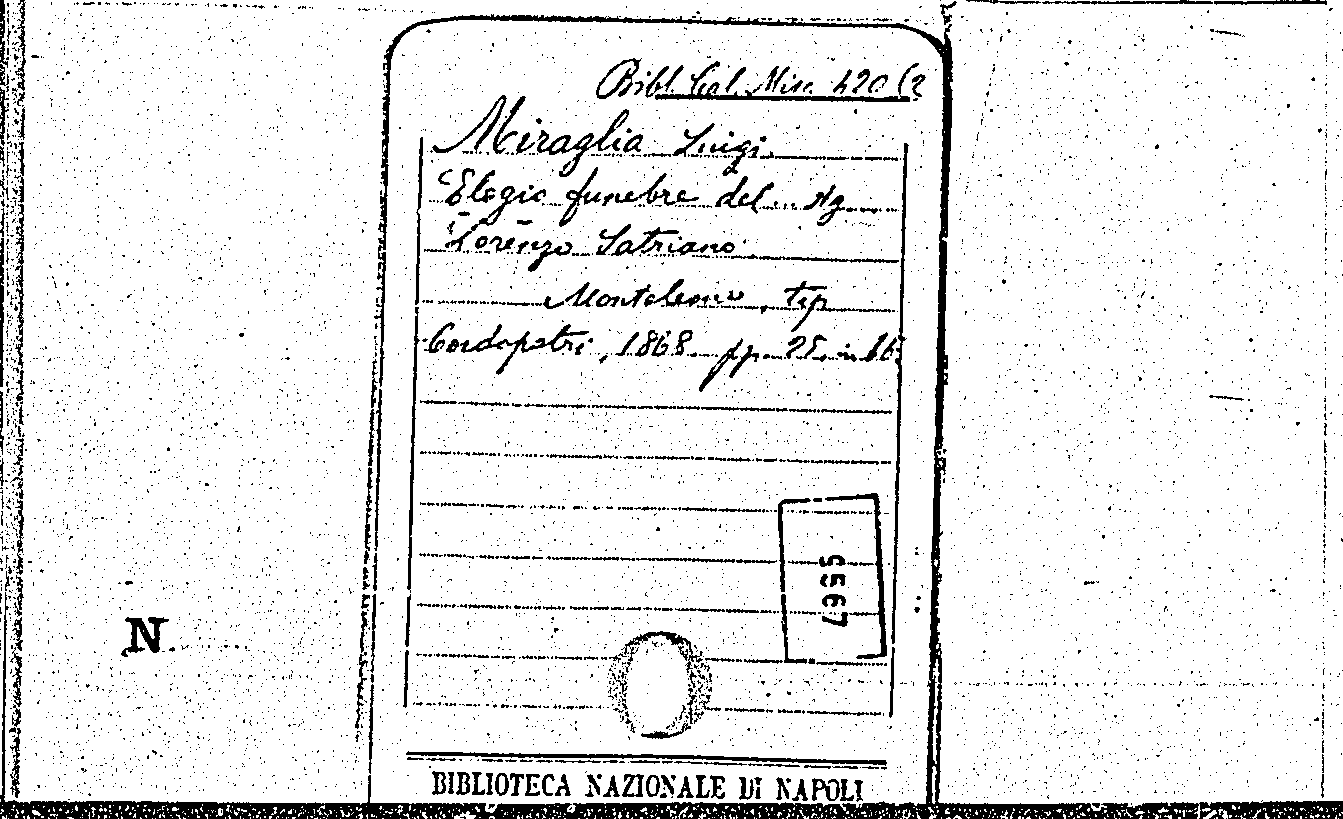 Bibl. Cal. Misc. 420 (2
Miraglia Luigi.
Elogio funebre del
Lorenzo Satriano.
Monteleone, tip
Cordopatri, 1868. pp. 25. in 16.
5567
N.
BIBLIOTECA NAZIONALE DI NAPOLI